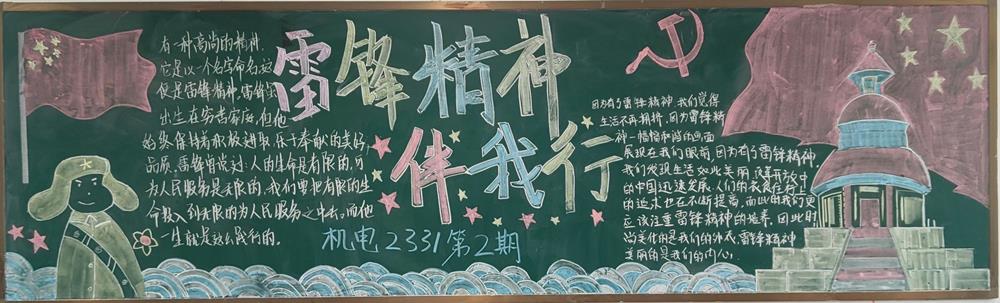 有一种高尚的精神.
它是以一个名字命名,这
便是雷锋精神,雷锋
出生在穷苦家庭,但他
始终保持着积极进取,乐于奉献的美好
品质。雷锋曾说过:人的生命是有限的,可
为人民服务是无限的,我们要把有限的生
命投入到无限的为人民服务之中去,而他
一生就是这么践行的。
雷锋精神
伴我行
机电2331第2期
因为有了雷锋精神,我们觉得
生活不再拥挤,因为雷锋精
神一幅幅和谐的画面
展现在我们眼前,因为有了雷锋精神
我们发现生活如此美丽,改革开放中
的中国迅速发展,人们的衣食住行上
的追求也在不断提高,而此时我们更
应该注重雷锋精神的培养,因此时
尚美化的是我们的外衣,雷锋精神
美丽的是我们的内心。